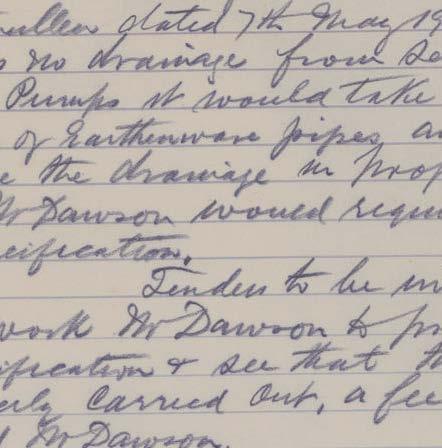 ullen dated 7th May 19
s no drainage from Se
Pumps it would take
of Earthenware pipes an
e the drainage in prop
Mr Dawson would requi
cification.
Tenders to be in
work Mr Dawson to pr
ification & see that th
erly Carried Out, a fee
Mr Dawson.